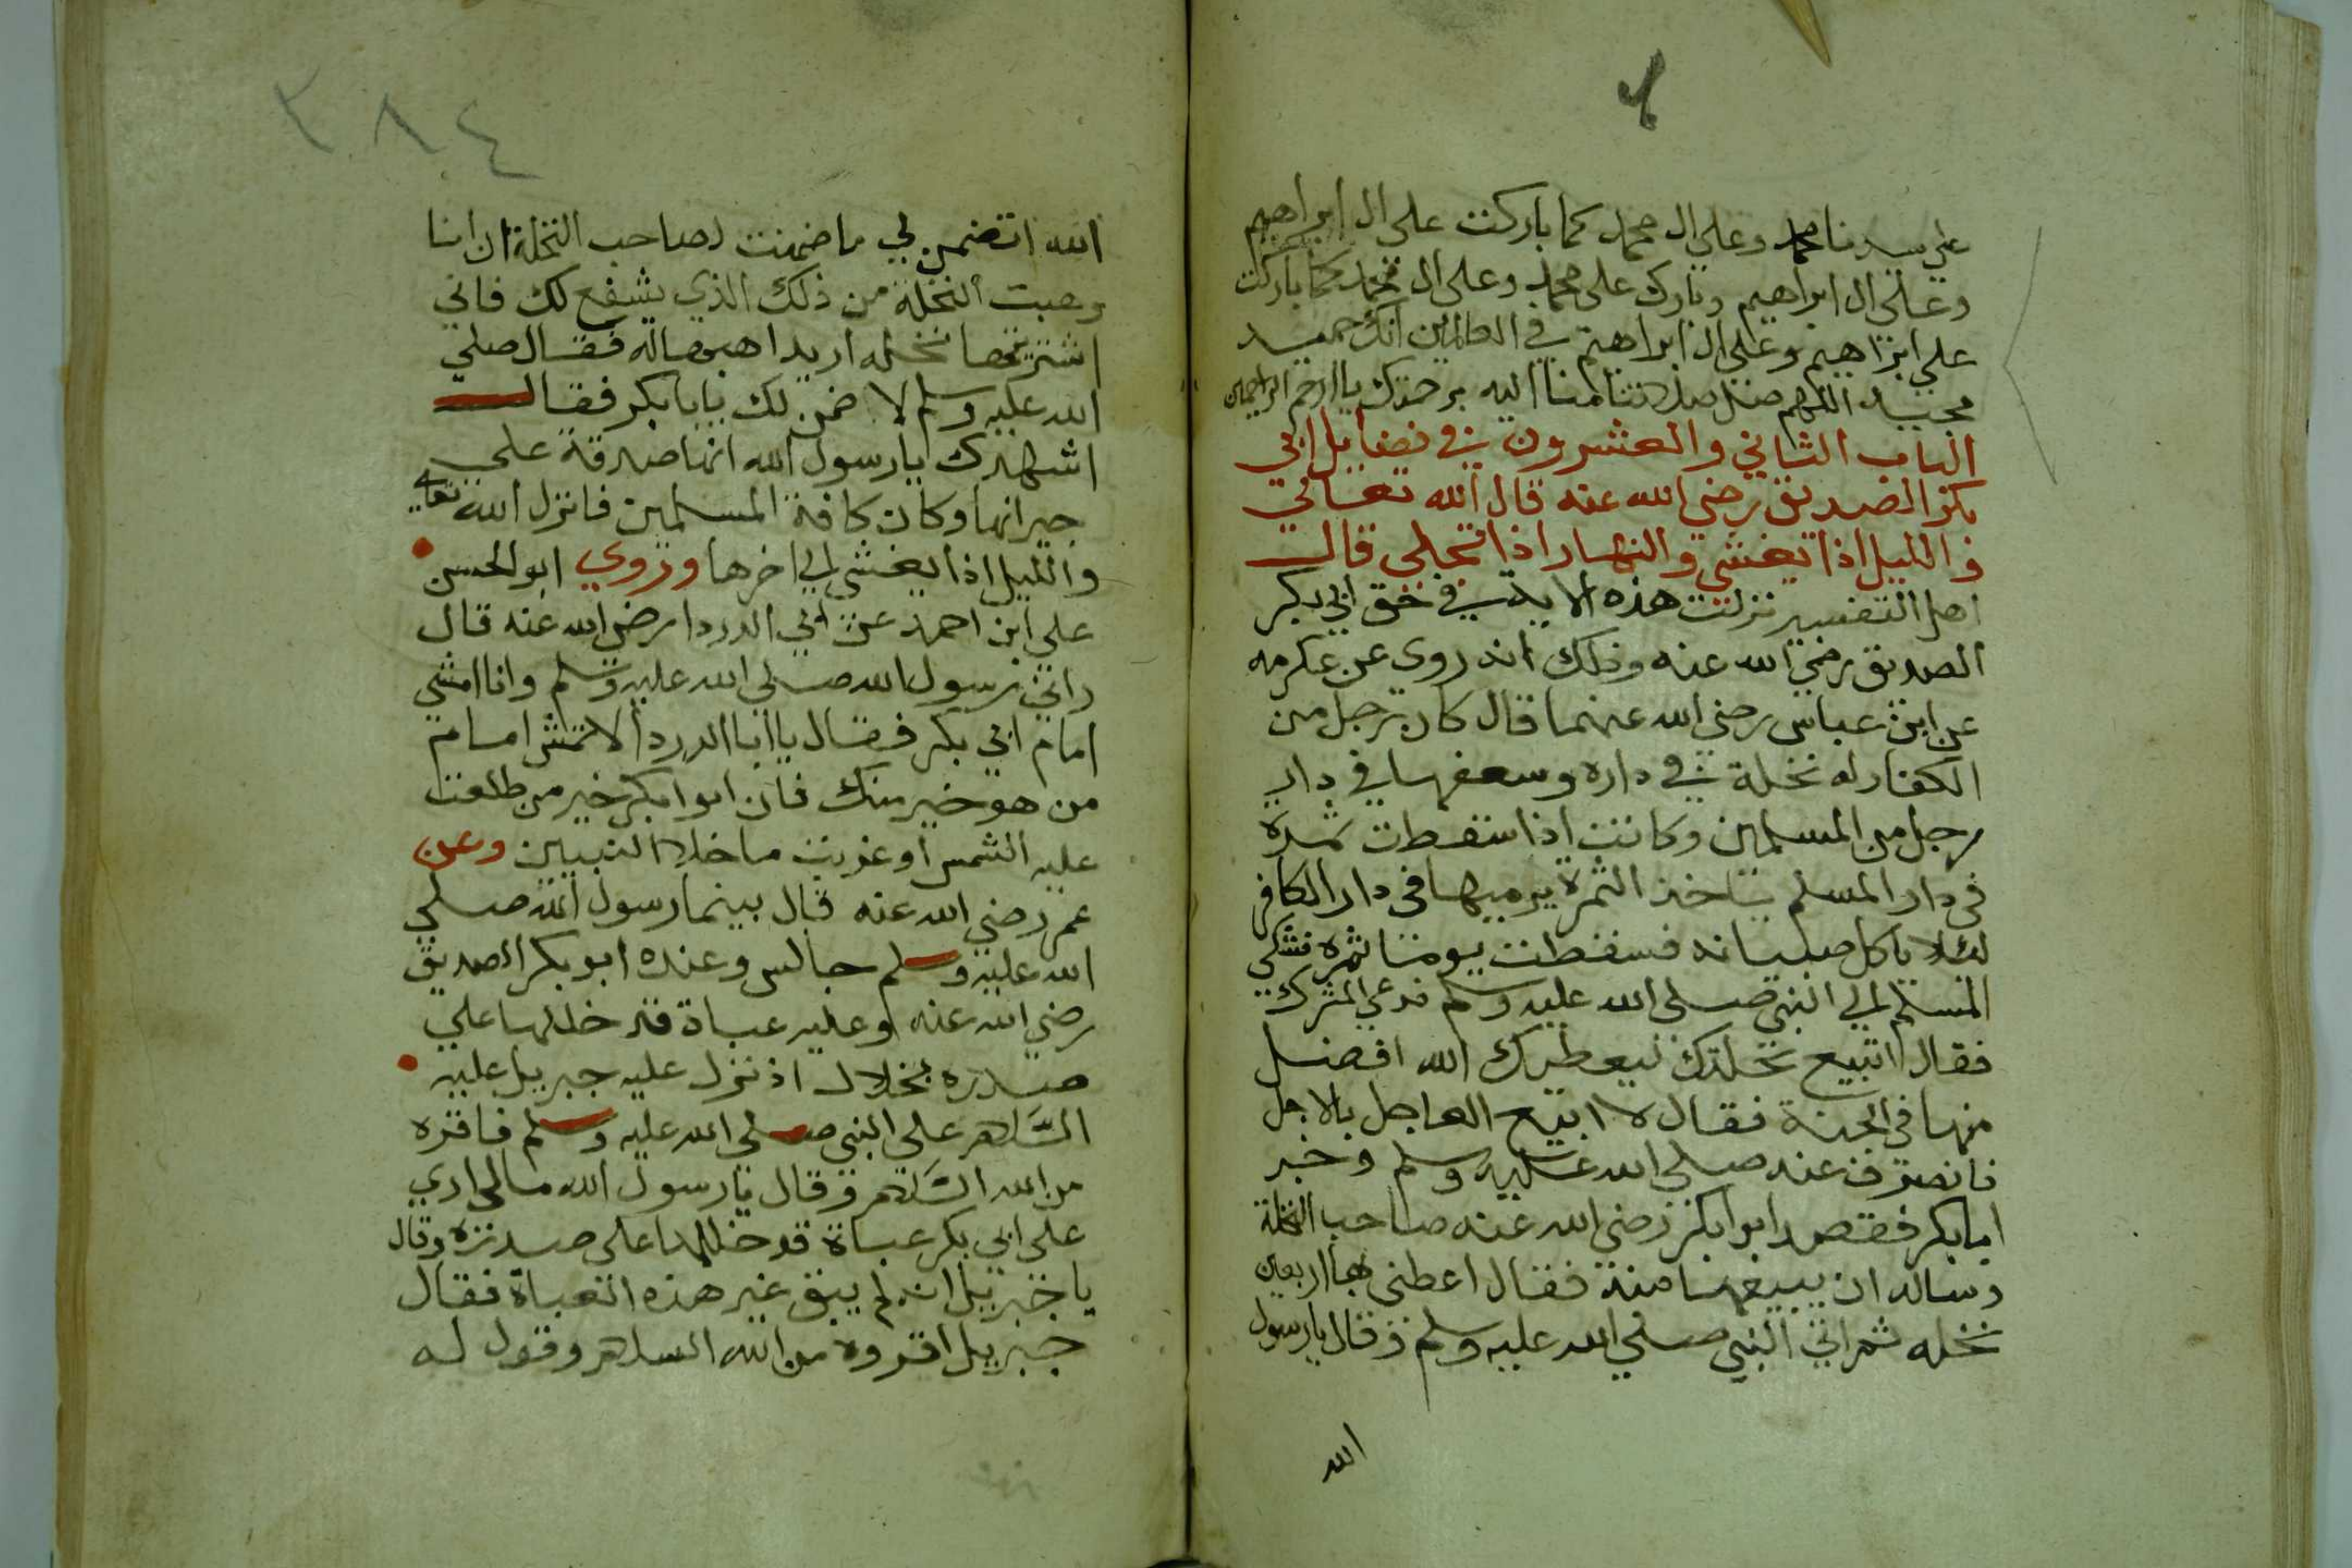 علي سيدنا محمد وعلي ال محمد كما باركت علي ال ابراهيم
وعلي ال ابراهيم وبارك على محمد وعلى ال محمد كما باركت
علي ابراهيم وعلى ال ابراهيم في العالمين انك حميد
مجيد اللهم صل صلاتنا اليه برحمتك يا ارحم الراحمين
الباب الثاني والعشرون في فضايل ابي
بكر الصديق رضي الله عنه قال الله تعالي
والليل اذا يغشي والنهار اذا تجلي قال
اهل التفسير نزلت هذه الاية في حق ابي بكر
الصديق رضي الله عنه وذلك انه روى عن عكرمه
عن ابن عباس رضي الله عنهما قال كان رجل من
الكفار له نخلة في داره وسعفها في دار
رجل من المسلمين وكانت اذا سقطت ثمرة
في دار المسلم ياخذ الثمرة يرميها في دار الكافر
لئلا ياكل صبيانه فسقطت يوما ثمره فشكي
المسلم الي النبي صلى الله عليه وسلم فدعي المشرك
فقال اتبيع نخلتك ليعطيك الله افضل
منها في الجنة فقال لا ابيع العاجل بالاجل
فانصرف عنه صلي الله عليه وسلم وخبر
ابا بكر فقصد ابوا بكر رضي الله عنه صاحب النخلة
وساله ان يبيعها منه فقال اعطني بها اربعين
نخله ثم اتي النبي صلي الله عليه وسلم وقال يا رسول
الله
٣٨٤
الله اتضمن لي ما ضمنت لصاحب النخلة ان انا
وهبت النخلة من ذلك الذي يشفع لك فاني
اشتريتها نخله اريد اهبها له فقال صلي
الله عليه وسلم لا ضمن لك يا بابكر فقال
اشهدك يا رسول الله انها صدقة علي
جيرانها وكان كافة المسلمين فانزل الله تعالي
والليل اذا يغشى الي اخرها وروي ابو الحسن
علي ابن احمد عن ابي الدردا رضي الله عنه قال
راني رسول الله صلي الله عليه وسلم وانا امشي
امام ابي بكر فقال يا ابا الدردا لا تمش امام
من هو خير منك فان ابوا بكر خير من طلعت
عليه الشمس او غربت ما خلا النبيين وعن
عمر رضي الله عنه قال بينما رسول الله صلي
الله عليه وسلم جالس وعنده ابو بكر الصديق
رضي الله عنه وعليه عباة قد خللها علي
صدره بخلال اذ نزل عليه جبريل عليه
السلام على النبي صلى الله عليه وسلم فاقره
من الله السلام وقال يا رسول الله مالي اري
على ابي بكر عباة قد خللها على صدره وقال
يا جبريل انه لم يبق غير هذه العباة فقال
جبريل اقروه من الله السلام وقول له